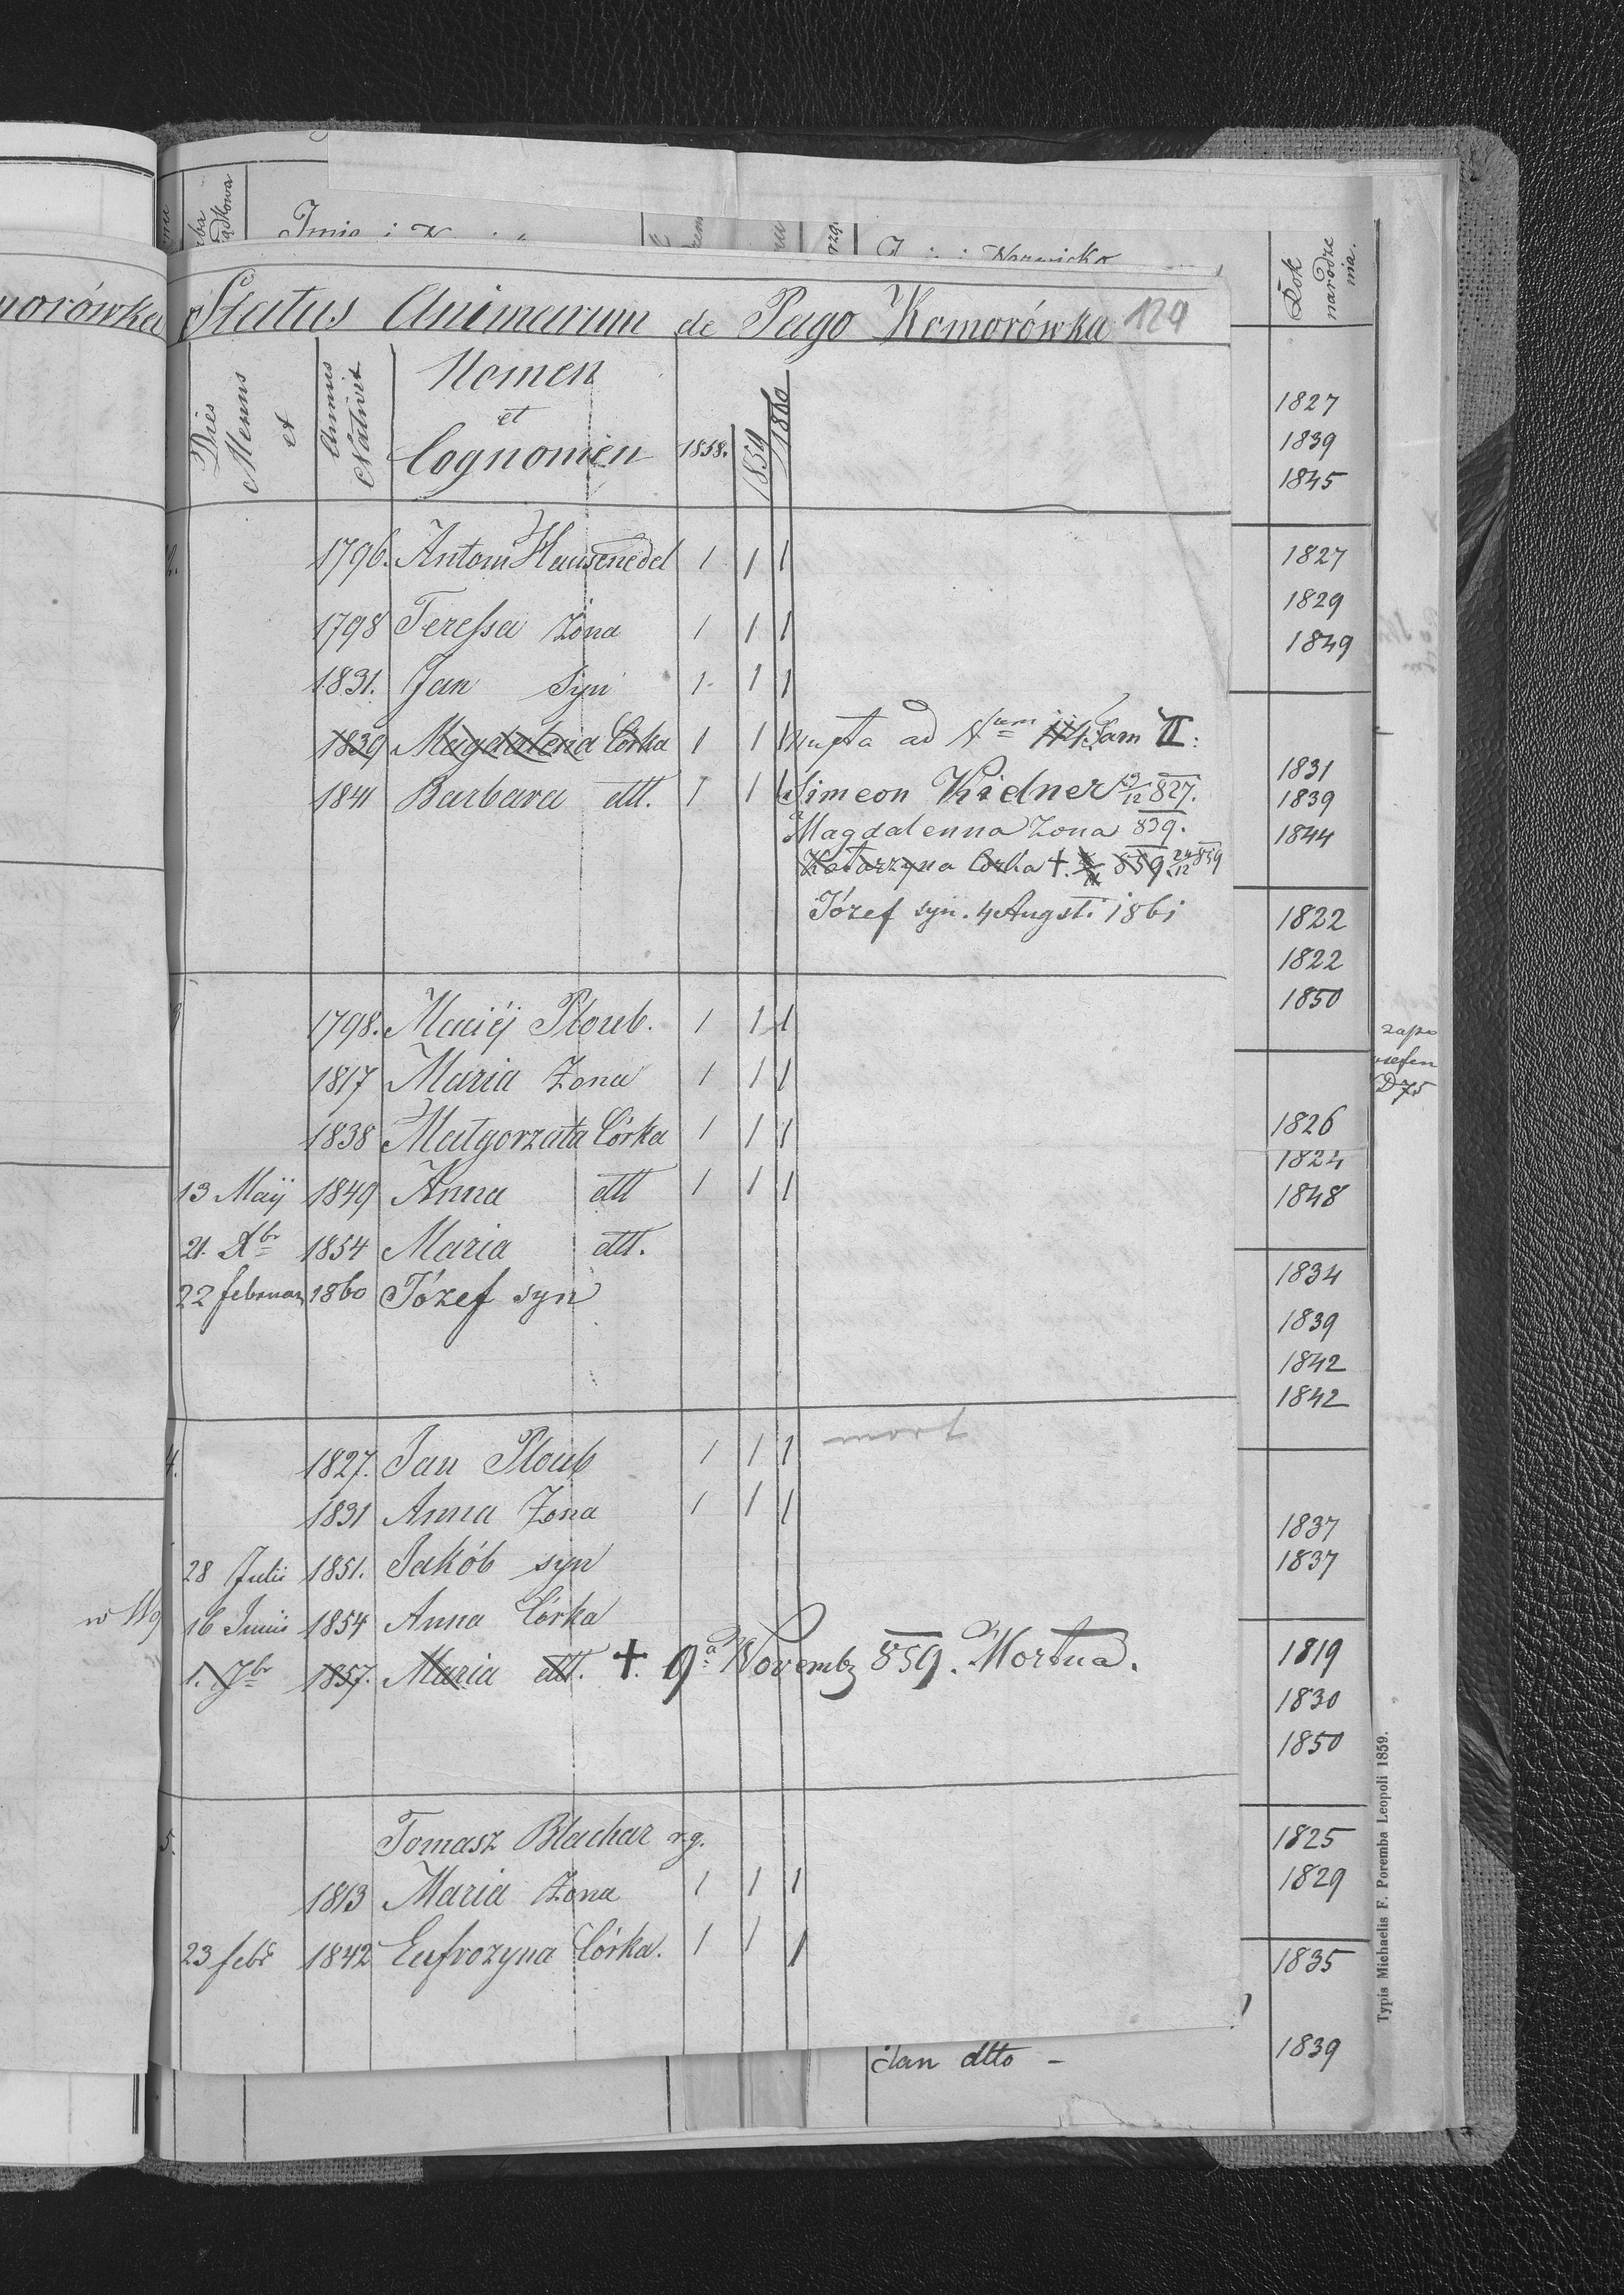 Imię i
Nazwisko
Rok
narodze
nia.
morówka
Status Animarum de Pago Komorówka 129
Dies
Mensis
et
Annus
Nativit
Nomen
et
Cognomen
1858.
1859
1860
1796. Antoni Hausenedel 1 1 1
1798 Teressa żona 1 1 1
1831. Jan Syn 1 1 1
1839 Magdalena Córka 1 1 1 nupta ad Num Fam II:
1841 Barbara dtt. 1 1 1 Simeon Kidner 19/12 827.
Magdalenna Zona 839.
Katarzyna Corka +. 859. 24/12 859
Józef syn. 4 Augsti 1861
3 1798. Maciéj Ploub. 1 1 1
1817 Maria Zona 1 1 1
1838 Małgorzata Córka 1 1 1
13 Maij 1849 Anna dtt 1 1 1
21. Xbr 1854 Maria dtt.
22 februar 1860 Józef syn
4. 1827. Jan Ploub 1 1 1
1831 Anna Zona 1 1 1
28 Julii 1851. Jakób syn
16 Junii 1854 Anna Córka
1. 7br 1857. Maria dtt. +. 9a Novembr 859. Mortua.
5. Tomasz Blachar r.g.
1813 Maria Zona 1 1 1
23 febr 1842 Eufrozyna Córka. 1 1 1
Jan dtto -
1827
1839
1845
1827
1829
1849
1831
1839
1844
1822
1822
1850
1826
1824
1848
1834
1839
1842
1842
1837
1837
1819
1830
1850
1825
1829
1835
1839
D 75
Typis Michaelis F. Poremba Leopoli 1859.